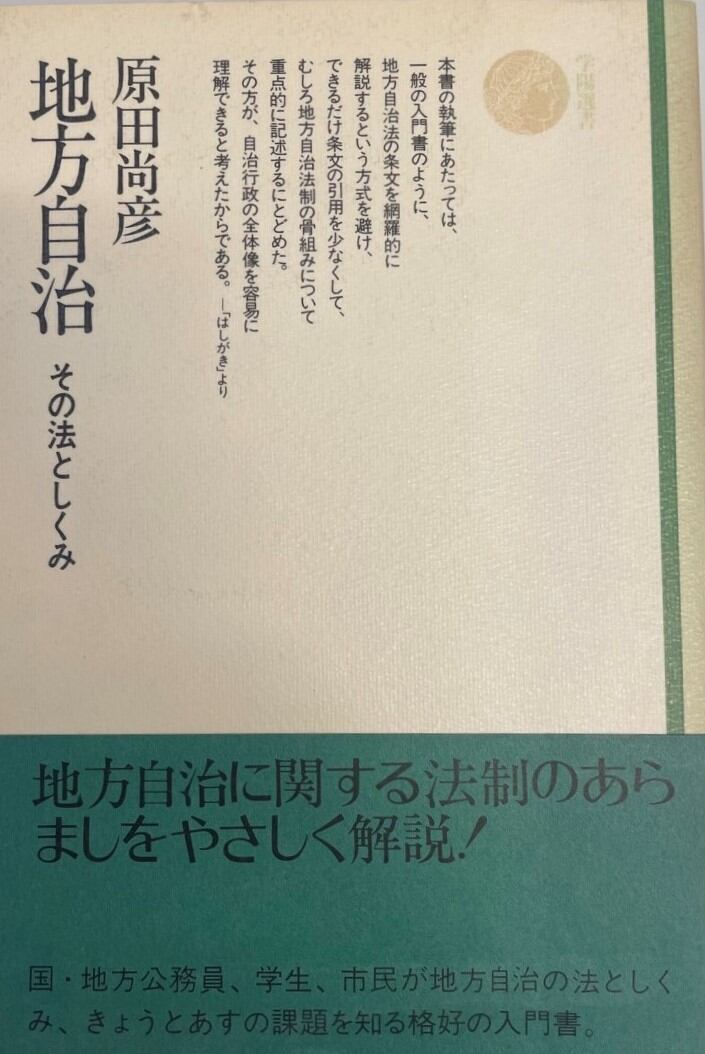 学陽選書
本書の執筆にあたっては、
一般の入門書のように、
地方自治法の条文を網羅的に
解説するという方式を避け、
できるだけ条文の引用を少なくして、
むしろ地方自治法制の骨組みについて
重点的に記述するにとどめた。
その方が、自治行政の全体像を容易に
理解できると考えたからである。―「はしがき」より
原田尚彦
地方自治 その法としくみ
地方自治に関する法制のあら
ましをやさしく解説!
国・地方公務員、学生、市民が地方自治の法としく
み、きょうとあすの課題を知る格好の入門書。